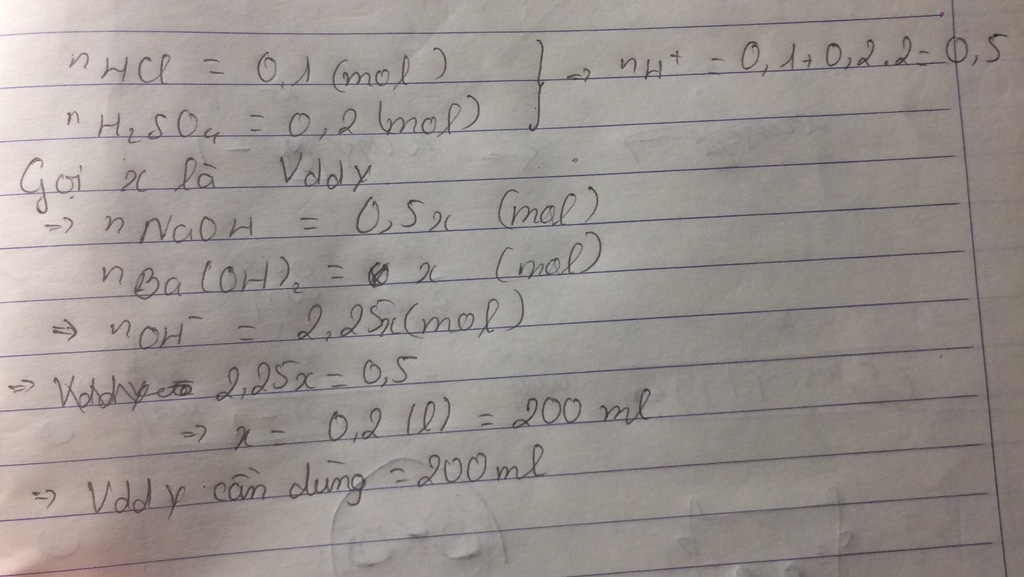 nHCl = 0,1 (mol) } => nH+ = 0,1+0,2.2=0,5
nH₂SO₄ = 0,2 (mol)
Gọi x là Vddy
=> nNaOH = 0,5x (mol)
nBa(OH)₂ = x (mol)
=> nOH⁻ = 2,25x (mol)
=> 2,25x = 0,5
=> x = 0,2 (l) = 200 ml
=> Vddy cần dùng = 200 ml